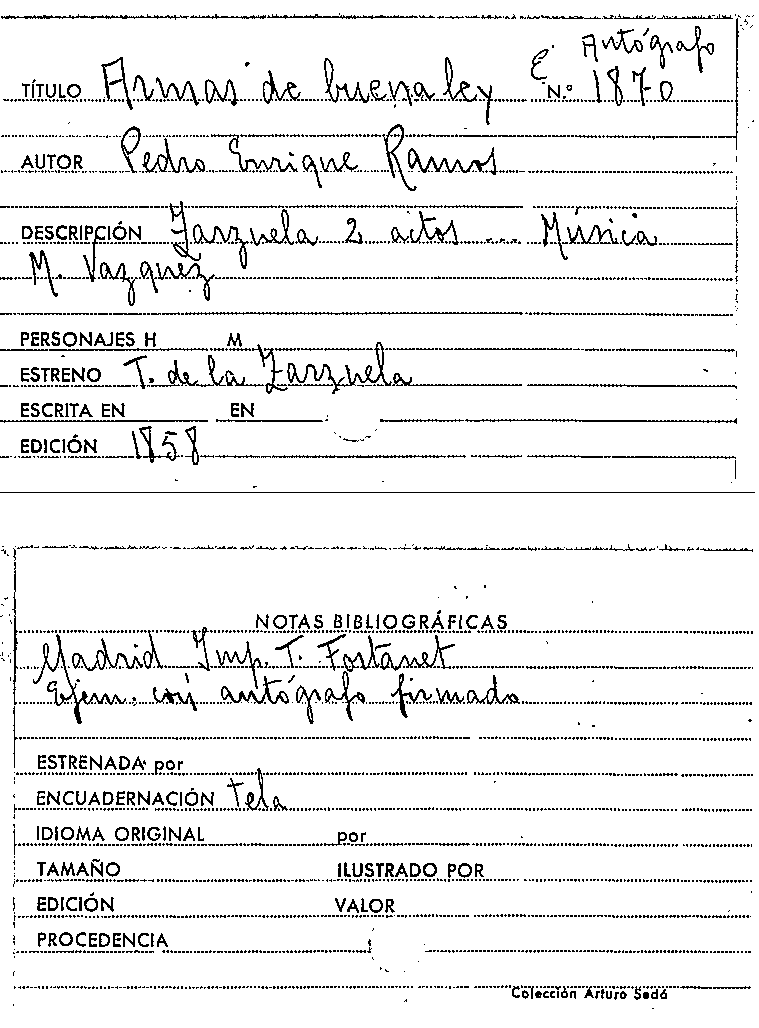 E. Autógrafo
TÍTULO Armas de buena ley N.º 1870
AUTOR Pedro Enrique Ramos
DESCRIPCIÓN Zarzuela 2 actos ... Música
M. Vazquez
PERSONAJES H M
ESTRENO T. de la Zarzuela
ESCRITA EN EN
EDICIÓN 1858
NOTAS BIBLIOGRÁFICAS
Madrid Imp. T. Fortanet
Ejem. con autógrafo firmado
ESTRENADA por
ENCUADERNACIÓN tela
IDIOMA ORIGINAL por
TAMAÑO ILUSTRADO POR
EDICIÓN VALOR
PROCEDENCIA
Colección Arturo Sedó